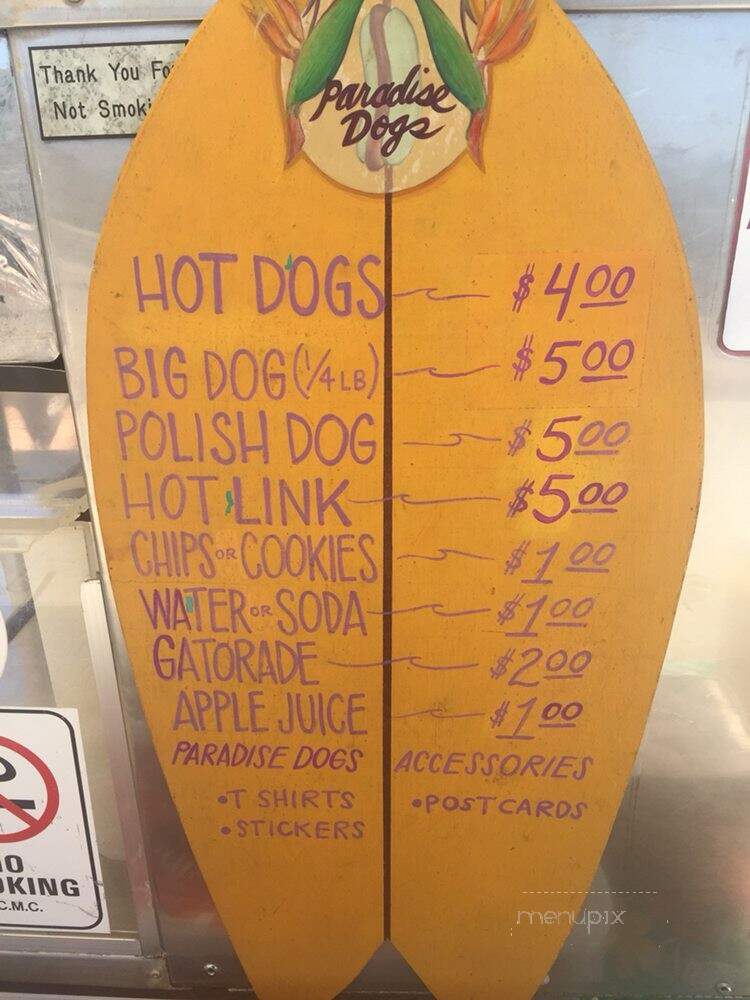 Thank You Fo
Not Smoki
Paradise
Dogs
HOT DOGS $4.00
BIG DOG (1/4 LB) $5.00
POLISH DOG $5.00
HOT LINK $5.00
CHIPS OR COOKIES $1.00
WATER OR SODA $1.00
GATORADE $2.00
APPLE JUICE $1.00
PARADISE DOGS ACCESSORIES
• T SHIRTS • POSTCARDS
• STICKERS
KING
C.M.C.
menupix